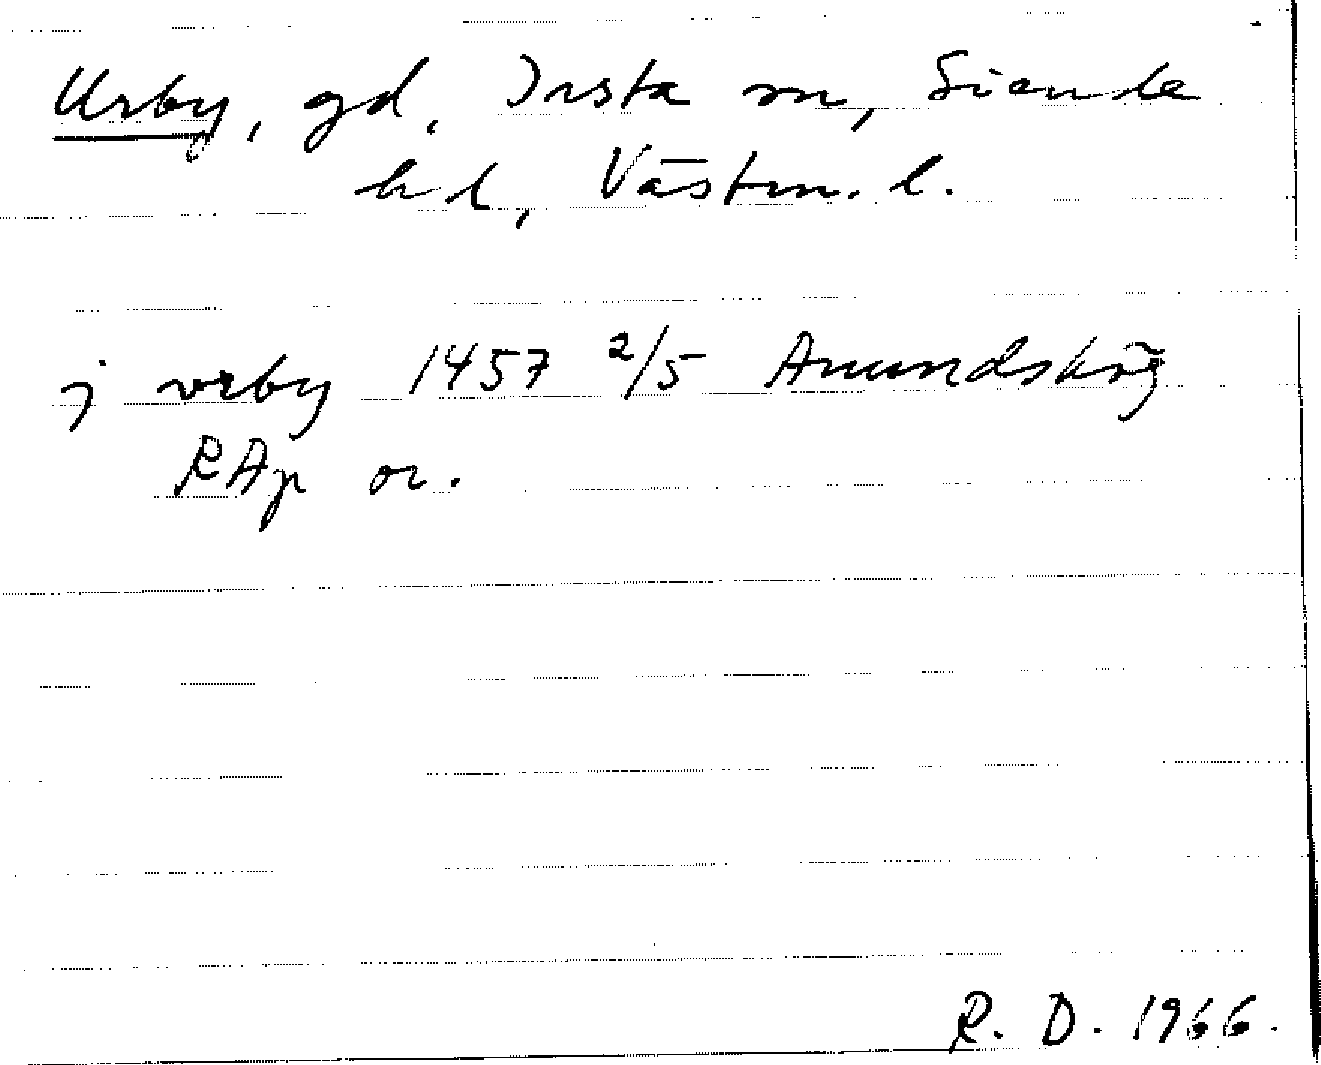 Urby, gd, Irsta sn, Siende
hd, Västm. l.
j vrby 1457 2/5 Amundskög
RAp or.
R. D. 1966.